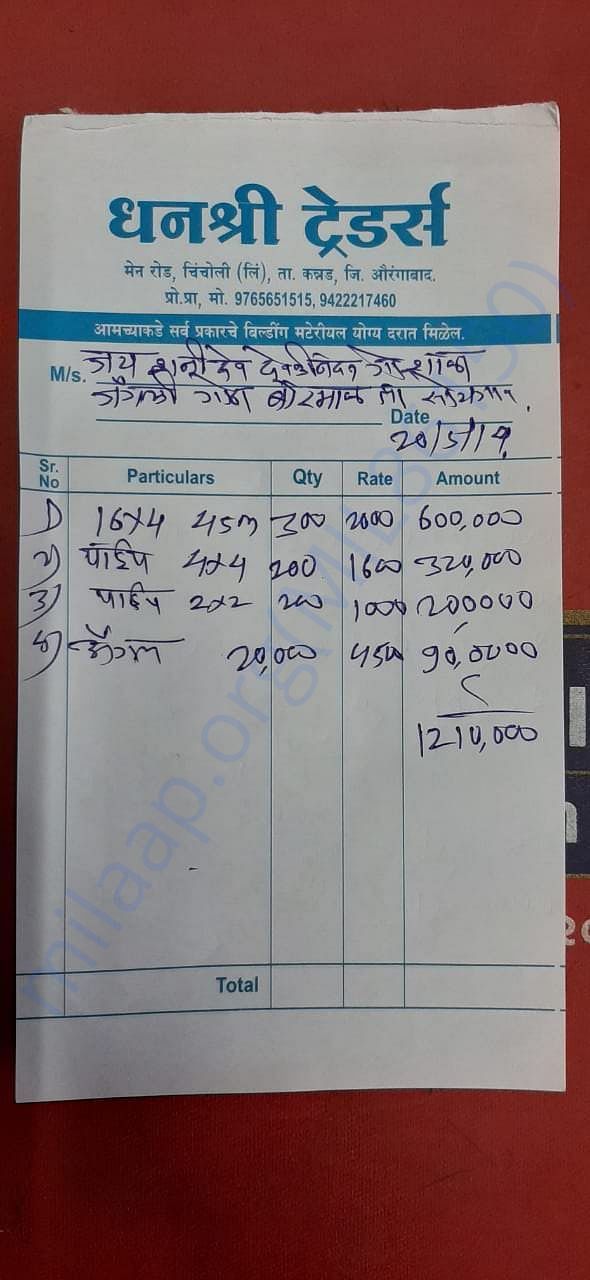 धनश्री ट्रेडर्स
मेन रोड, चिंचोली (लिं), ता. कन्नड, जि. औरंगाबाद.
प्रो.प्रा, मो. 9765651515, 9422217460
आमच्याकडे सर्व प्रकारचे बिल्डींग मटेरीयल योग्य दरात मिळेल.
M/s. जय शनीदेव गोशाळा
Date
Sr. No Particulars Qty Rate Amount
1) 16x4 45m 300 2000 600,000
2) पाईप 4x4 200 1600 320,000
3) पाईप 2x2 200 1000 200000
20,000 90,0000
1210,000
Total
milaap.org